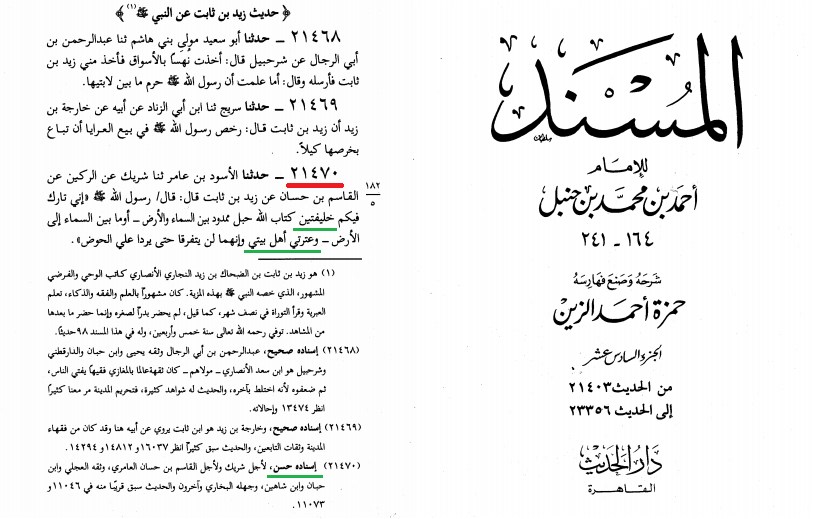 المسند
للإمام
أحمد بن محمد بن حنبل
١٦٤ - ٢٤١
شرحه وصنع فهارسه
حمزة أحمد الزين
الجزء السادس عشر
من الحديث ٢١٤٠٣
إلى الحديث ٢٣٣٥٦
دار الحديث
القاهرة
﴿ حديث زيد بن ثابت عن النبي ﷺ (١) ﴾
٢١٤٦٨ ــ حدثنا أبو سعيد مولى بني هاشم ثنا عبدالرحمن بن
أبي الرجال عن شرحبيل قال: أخذت نهسًا بالأسواق فأخذ مني زيد بن
ثابت فأرسله وقال: أما علمت أن رسول الله ﷺ حرم ما بين لابتيها.
٢١٤٦٩ ــ حدثنا سريج ثنا ابن أبي الزناد عن أبيه عن خارجة بن
زيد أن زيد بن ثابت قال: رخص رسول الله ﷺ في بيع العرايا أن تباع
بخرصها كيلاً.
٢١٤٧٠ ــ حدثنا الأسود بن عامر ثنا شريك عن الركين عن
١٨٢
٥
القاسم بن حسان عن زيد بن ثابت قال: قال/ رسول الله ﷺ «إني تارك
فيكم خليفتين كتاب الله حبل ممدود بين السماء والأرض ــ أوما بين السماء إلى
الأرض ــ وعترتي أهل بيتي وإنهما لن يتفرقا حتى يردا علي الحوض».
(١) هو زيد بن ثابت بن الضحاك بن زيد النجاري الأنصاري كاتب الوحي والفرضي
المشهور، الذي خصه النبي ﷺ بهذه المزية. كان مشهوراً بالعلم والفقه والذكاء، تعلم
العبرية وقرأ التوراة في نصف شهر، كما قيل، لم يحضر بدراً لصغره وإنما حضر ما بعدها
من المشاهد. توفي رحمه الله تعالى سنة خمس وأربعين، وله في هذا المسند ٩٨ حديثًا.
(٢١٤٦٨) إسناده صحيح، عبدالرحمن بن أبي الرجال وثقه يحيى وابن حبان والدارقطني
وشرحبيل هو ابن سعد الأنصاري ــ مولاهم ــ كان ثقة عالما بالمغازي فقيها يفتي الناس،
ثم ضعفوه لأنه اختلط بآخره، والحديث له شواهد كثيرة، فتحريم المدينة مر معنا كثيراً
انظر ١٣٤٧٤ وإحالاته.
(٢١٤٦٩) إسناده صحيح، وخارجة بن زيد هو ابن ثابت يروي عن أبيه هنا وقد كان من فقهاء
المدينة وثقات التابعين، والحديث سبق كثيراً انظر ١٦٠٣٧ و ١٤٨١٢ و ١٤٢٩٤.
(٢١٤٧٠) إسناده حسن، لأجل شريك ولأجل القاسم بن حسان العامري، وثقه العجلي وابن
حبان وابن شاهين، وجهله البخاري وآخرون والحديث سبق قريبًا منه في ١١٠٤٦ و
١١٠٧٣.